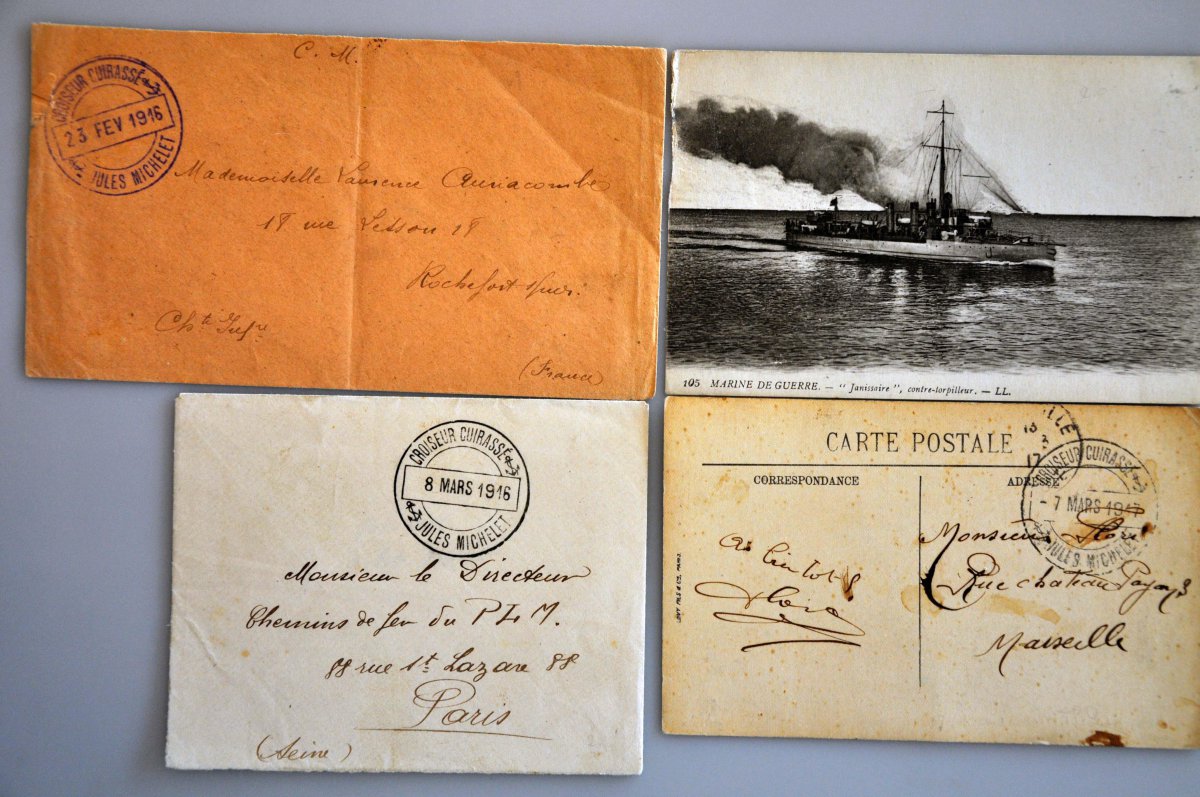 C. M.
CROISEUR CUIRASSÉ
23 FEV 1916
JULES MICHELET
Mademoiselle Laurence Auriacombe
18 rue Lesson 18
Rochefort s/mer.
Ch.te Inf.re
(France)
105 MARINE DE GUERRE. — "Janissaire", contre-torpilleur. — LL.
CROISEUR CUIRASSÉ
8 MARS 1916
JULES MICHELET
Monsieur le Directeur
Chemins de fer du P L M.
88 rue St. Lazare 88
Paris
(Seine)
CARTE POSTALE
CORRESPONDANCE
ADRESSE
CROISEUR CUIRASSÉ
- 7 MARS 1917
JULES MICHELET
Monsieur
Rue chateau Payan 3
Marseille
LEVY FILS & CIE, PARIS